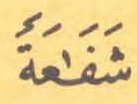 شَفَـٰعَةًۭ